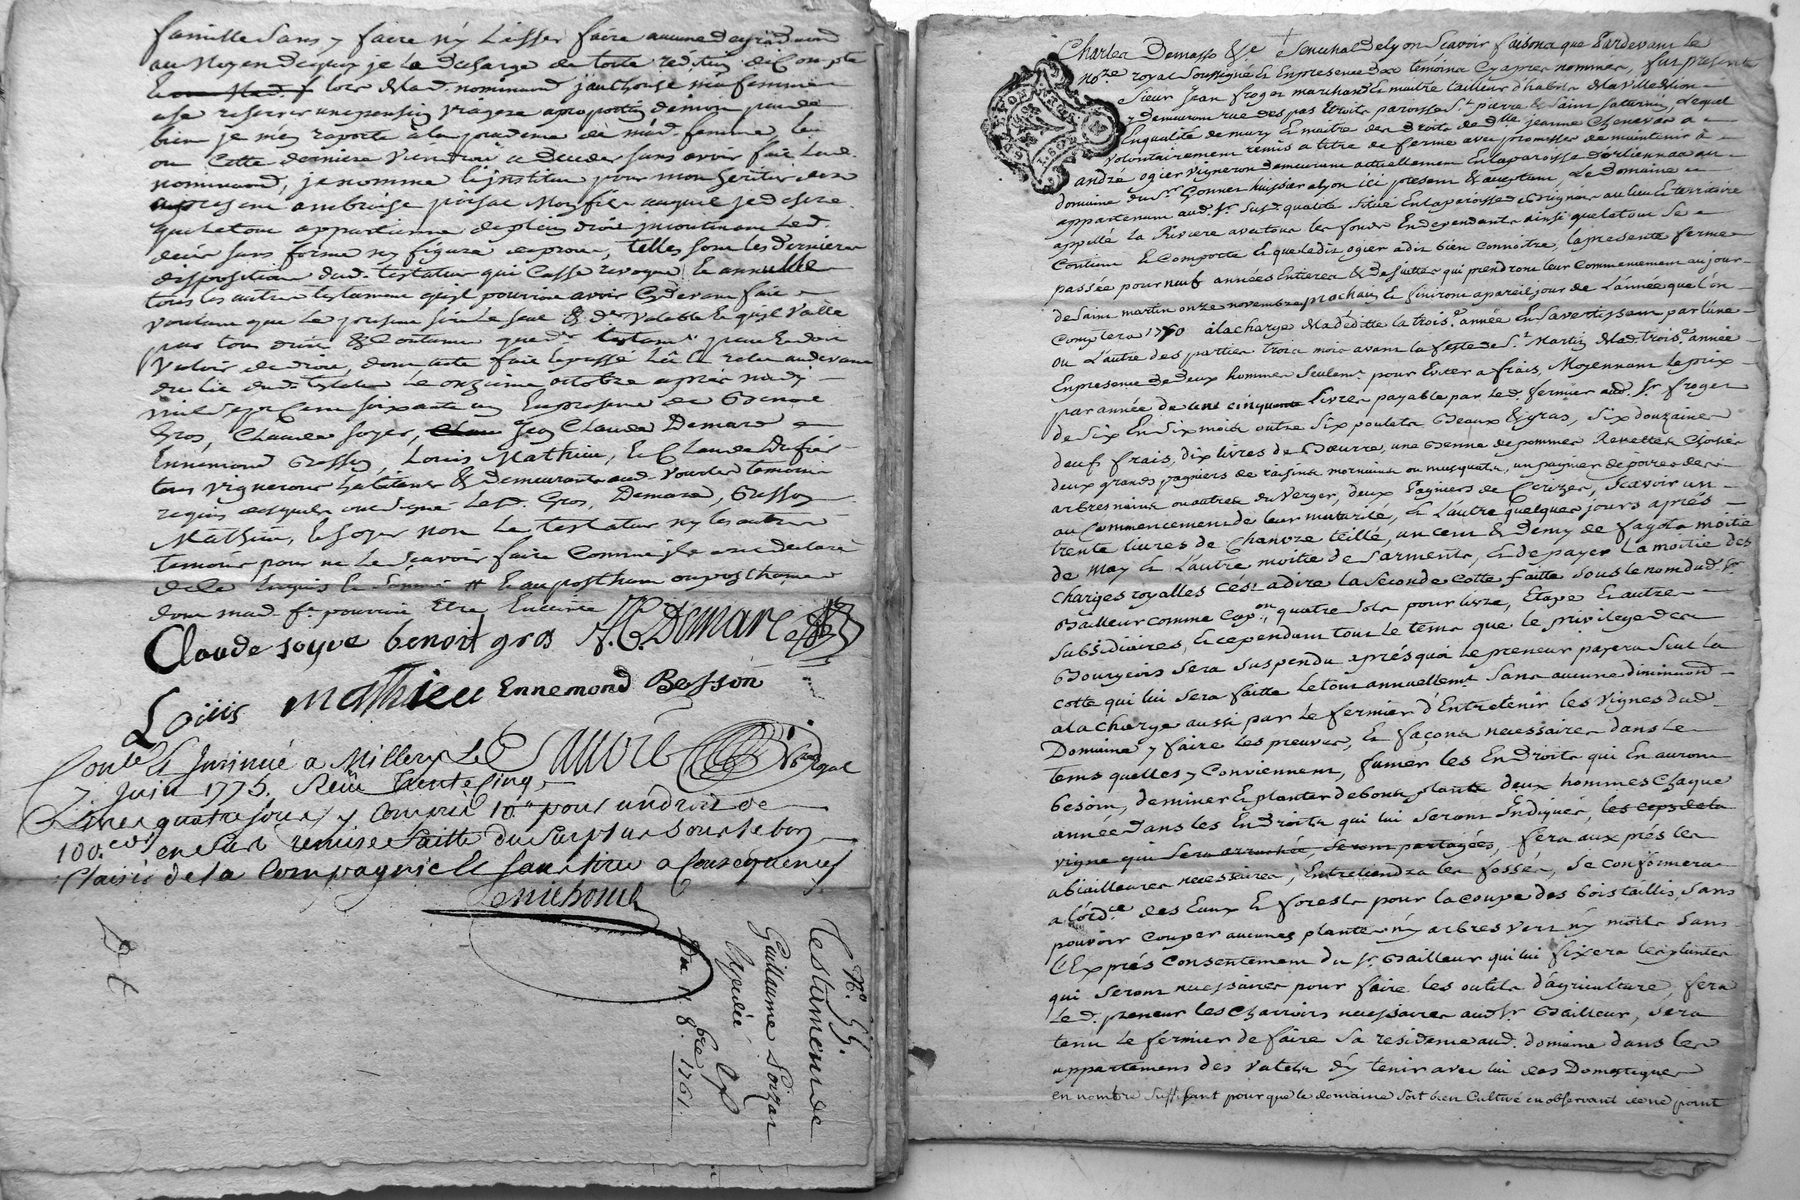 famille sans y faire n'y laisser faire aucune degradaon
au moyen dequoy je la decharge de toute reddion de compte
lors de lad. nominaond j'authorise ma femme
a se reserver une pension viagere a proportion de mon peu de
bien je m'en raporte a la prudence de mad. femme, les
ou cette derniere viendroit a deceder sans avoir fait lad.
nominaond, je nomme & institue pour mon heritier des a
present ambroise poisat mon fils auquel je desire
que le tout appartienne de plein droit incontinent led.
deces sans forme ny figure de proces, telles sont les dernieres
disposition dud. testateur qui casse revoque & annulle
tous les autres testament qu'il pourroit avoir cy devant fait
voulant que le present soit le seul & de valable & qu'il vaille
par tous droit & coutume que de testamt peut & doit
valoir de droit, dont acte fait & passé
du testateur le onzieme octobre après midy
mil sept cent soixante un en presence de Benoit
Gros, Claude Soyer, Jean Claude Demare
Ennemond Besson, Louis Mathieu, & Claude
tous vignerons habitants & demeurants aud. vourles temoins
requis desquels ont signé led. Gros, Demare, Besson
Mathieu, & Soyer non le testateur ny les autres
temoins pour ne le sçavoir faire comme ils ont declaré
de ce enquis & sommé # & au posthume ou posthumes
dont mad. fe pourroit etre enceinte
Claude soyve benoit gros J.C. Demare
Louis mathieu Ennemond Besson
Conlé & Insinué a Millery Le
7 Juin 1775. Reçu trente cinq
Livres quatre sous y compris 10 pour un droit de
100.e en sus remise faitte du surplus sous le bon
plaisir de la Compagnie & sans tirer a consequences
N.o 55.
Testament de
Guillaume Poizat
Expedié
Du 11 8.bre 1761.
Charles Demasso &c Senechal de Lyon Scavoir faisons que Pardevant le
No.re royal soussigné & En presence des temoins Cy apres nommés, fut present
Sieur Jean froger marchand & maitre tailleur d'habits de la ville de Lion
y demeurant rue des pas Etroits paroisse St pierre & Saint Saturnin, Lequel
En qualité de mary & maitre des droits de dlle jeanne Chenevas a
volontairement remis a titre de ferme avec promesse de maintenir à
andré ogier vigneron demeurant actuellement En la paroisse d'orliennas au
domaine du Sr Gonnet huissier a lyon ici present & acceptant, Le domaine
appartenant aud. Sr Susd. qualité Situé En la paroisse de Brignais au lieu & territoire
appellé la Riviere avec tous les fonds En dependants ainsi que le tout Se
Contient & Comporte & que ledit ogier a dit bien connoitre, la presente ferme
passée pour neuf années Entieres & de Suittes qui prendront leur Commencement au jour
de Saint martin onze novembre prochain & finiront a pareil jour de L'année que l'on
Comptera 1770 à la charge de la dédite la trois.e année En s'avertissant par l'une
ou L'autre des parties trois mois avant la feste de St Martin de lad. trois.e année
En presence de deux hommes Seulemt pour Eviter a frais, Moyennant le prix
par année de cinquante livres payable par led. fermier aud. Sr froger
de Six En Six mois outre Six poulets Beaux & gras, Six douzaines
d'œufs frais, dix livres de Beurre, une Benne de pommes Renettes Choisies
deux grands pagniers de raisins mornains ou musquats, un pagnier de poires des
arbres nains ou autres du Verger, deux Pagniers de Cerizes, Scavoir un
au Commencement de leur maturité, & L'autre quelques jours aprés
trente livres de Chanvre teillé, un cent & demy de fagots moitié
de may & L'autre moitié de Sarments, & de payer La moitié des
Charges royalles C'ést a dire la seconde Cotte faitte sous le nom dud. Sr
Bailleur comme Cap.on, quatre sols pour livre, Etape & autre
Subsidiaires, & cependant tout le tems que le privilege des
Bourgeois Sera Suspendu aprés quoi Le preneur payera Seul La
Cotte qui lui Sera faitte Le tout annuellemt Sans aucune diminuond
a la charge aussi par Le fermier d'Entretenir les vignes dud.
Domaine y faire les preuves, & façons necessaires dans Le
tems quelles y Conviennent, fumer les Endroits qui En auront
besoin, de miner & planter de bons plants deux hommes Chaque
année dans les Endroits qui lui Seront Indiqués, les ceps de la
vigne qui sera arrachée, seront partagés, fera aux prés les
abiailleures necessaires, Entretiendra les fossés, Se conformera
a l'ord.ce des Eaux & forests pour la coupe des bois taillis, Sans
pouvoir Couper aucunes plantes n'y arbres vert n'y morts Sans
L'Exprés Consentement du Sr Bailleur qui lui fixera les plantes
qui Seront necessaires pour faire les outils d'agriculture, fera
Le d. preneur les Charrois necessaires aud. Sr Bailleur, Sera
tenu Le fermier de faire Sa residence aud. domaine dans les
appartemens des valets d'y tenir avec lui des Domestiques
en nombre Suffisant pour que le domaine Soit bien Cultivé en observant de ne point